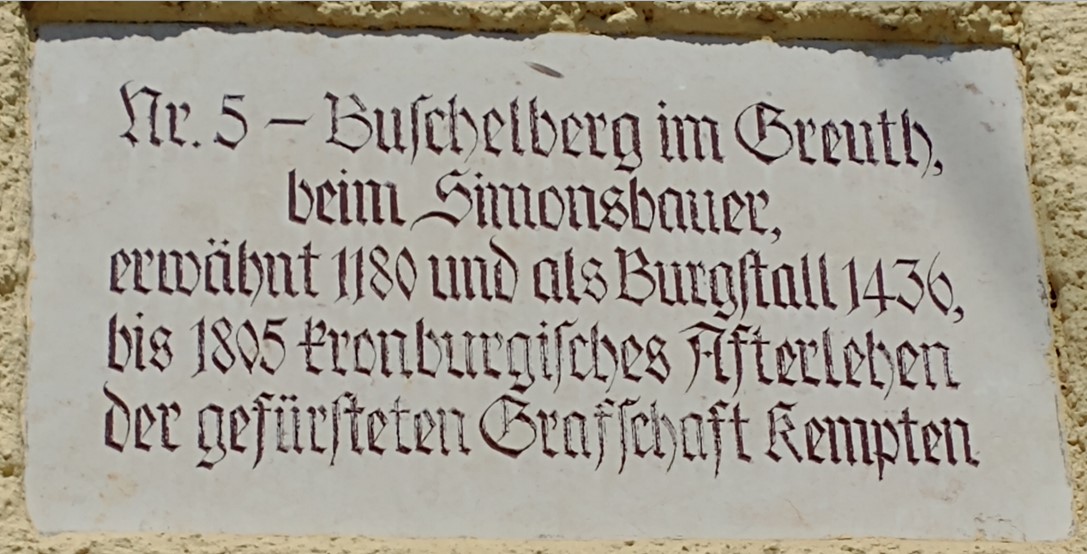 Nr. 5 – Buschelberg im Greuth,
beim Simonsbauer,
erwähnt 1180 und als Burgstall 1436,
bis 1805 kronburgisches Afterlehen
der gefürsteten Grafschaft Kempten